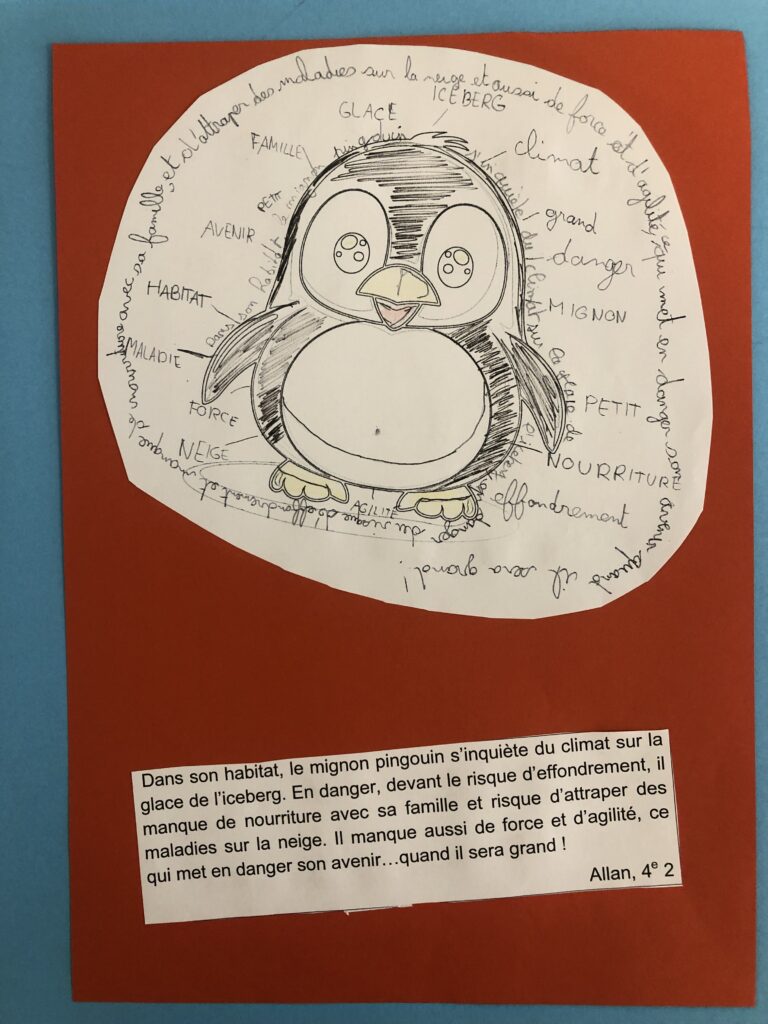 Dans son habitat le mignon pingouin s'inquiète du climat sur la glace de
danger du risque d'effondrement et manque de nourriture avec sa famille, et d'attraper des maladies sur la neige et aussi de force et d'agilité, ce qui met en danger son avenir quand il sera grand!
ICEBERG
GLACE
FAMILLE
climat
PETIT
grand
AVENIR
danger
HABITAT
MIGNON
MALADIE
FORCE
PETIT
NEIGE
NOURRITURE
AGILITÉ
effondrement
Dans son habitat, le mignon pingouin s'inquiète du climat sur la
glace de l'iceberg. En danger, devant le risque d'effondrement, il
manque de nourriture avec sa famille et risque d'attraper des
maladies sur la neige. Il manque aussi de force et d'agilité, ce
qui met en danger son avenir…quand il sera grand !
Allan, 4e 2